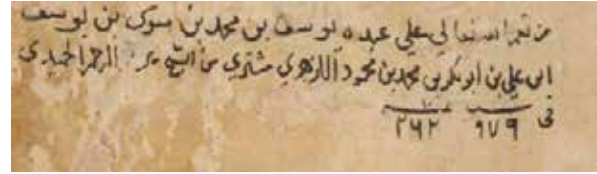 من نعم الله تعالى على عبده يوسف بن محمد بن سوكى بن يوسف
ابن علي بن ابو بكر بن محمد بن محمود الازهري مشتري من الشيخ الحميدي
في ٩٧٩ ٢٦٢